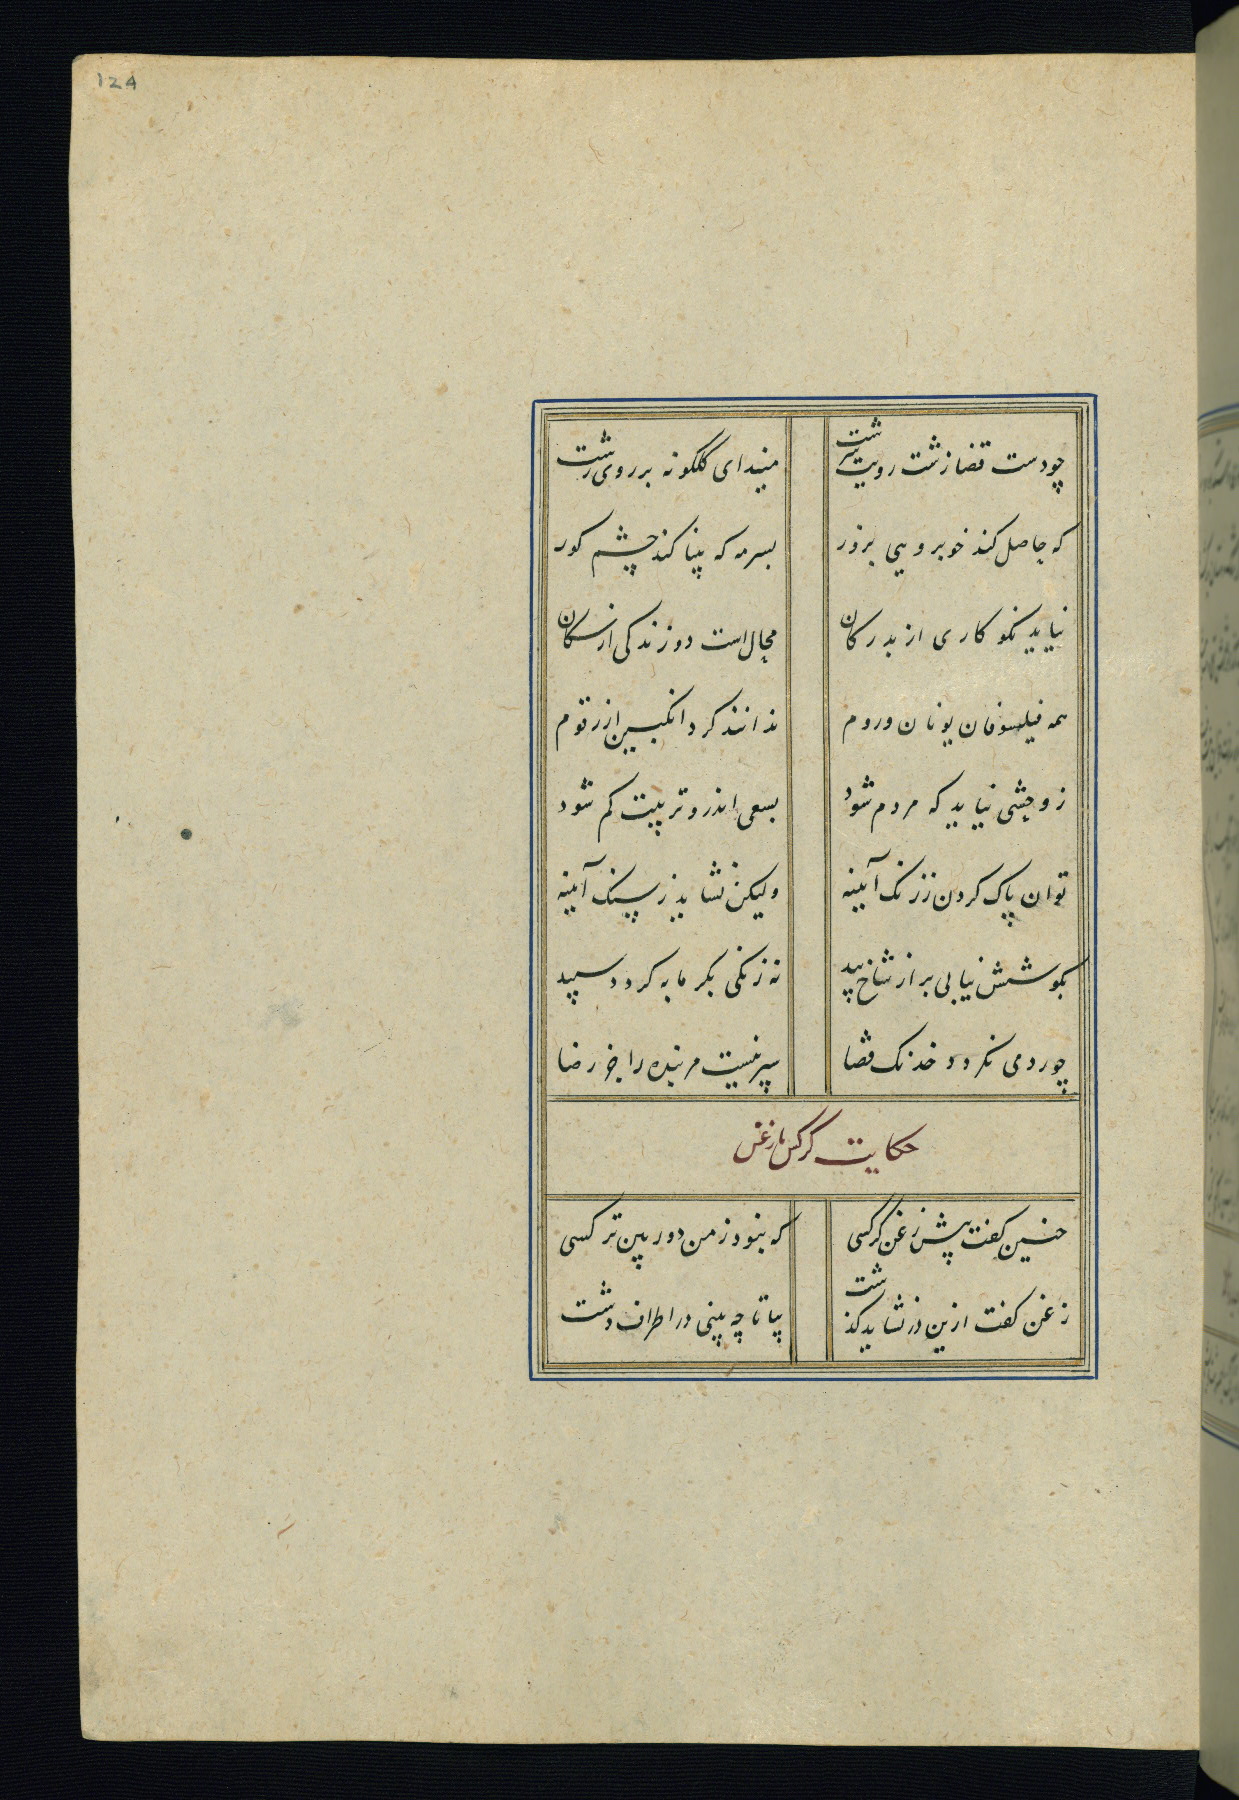 124
چو دست قضا زشت رویت سرشت میندای گلگونه بر روی زشت
که حاصل کند خوبرویی بزور بسرمه که بینا کند چشم کور
نیاید نکوکاری از بدرکان محال است دوزندکی از سکان
همه فیلسوفان یونان و روم ندانند کرد انکبین از زقوم
ز وحشی نیاید که مردم شود بسعی اندرو تربیت کم شود
توان پاک کردن ز زنک آیینه ولیکن نشاید ز سنک آینه
بکوشش نیابی بر از شاخ بید نه زنکی بکرمابه کردد سپید
چو ردمی نکردد خدنک قضا سپر نیست مر بنده را جز رضا
حکایت کرکس با زغن
چنین کفت پیش زغن کرکسی که نبود ز من دوربین تر کسی
زغن کفت ازین در نشاید کذشت بیا تا چه بینی در اطراف دشت